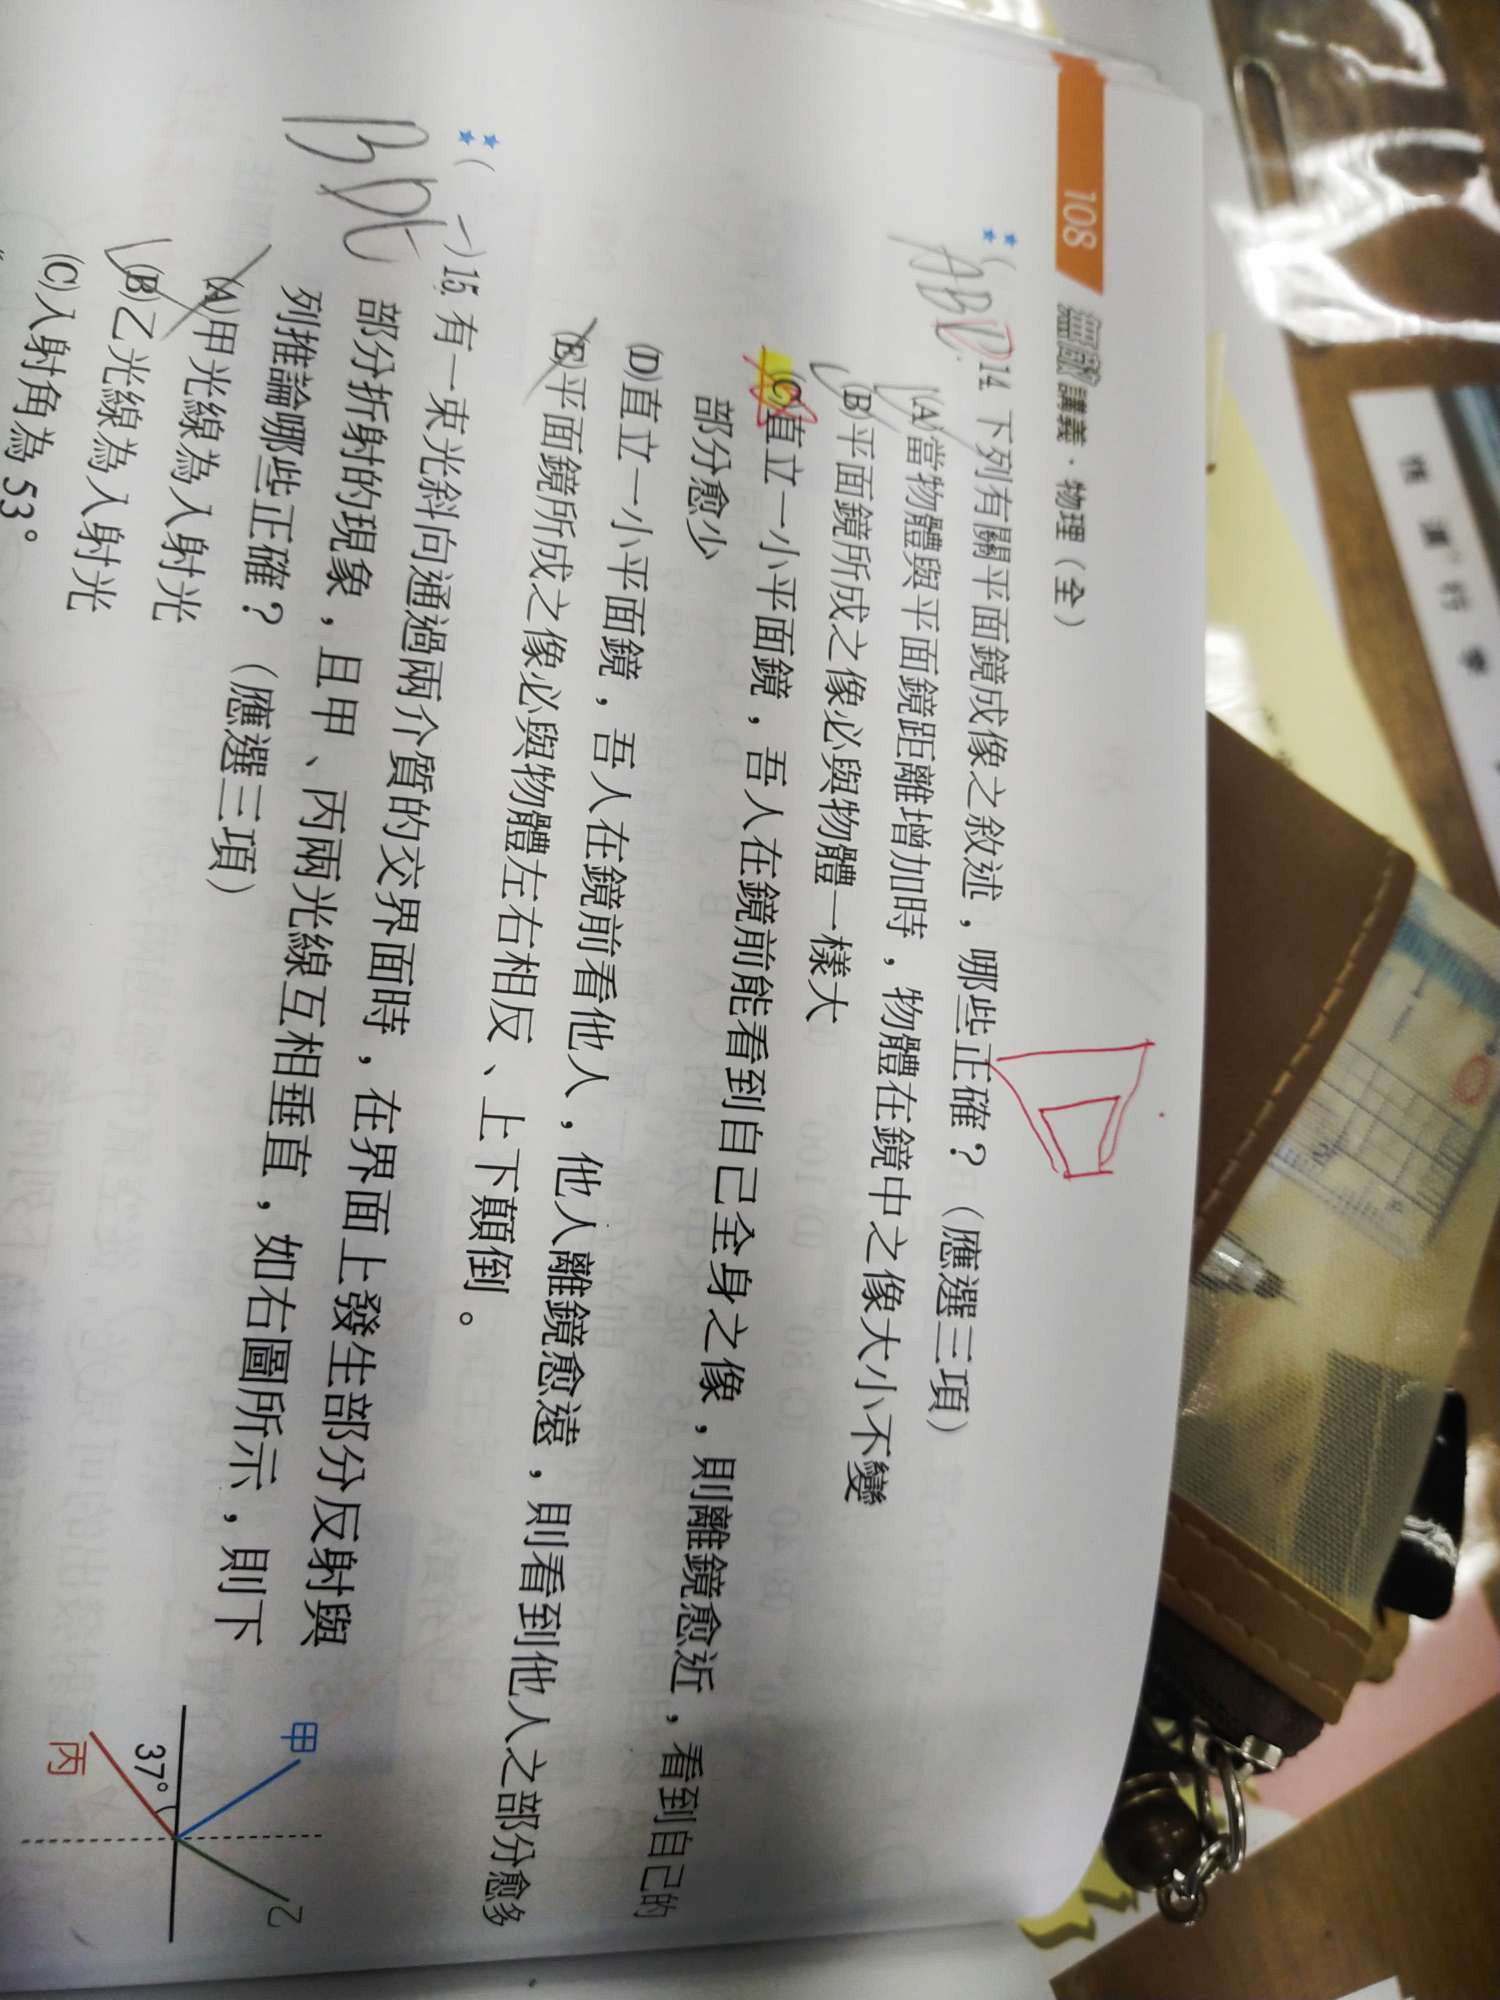 108 無敵 講義·物理(全)
ABD 14. 下列有關平面鏡成像之敘述，哪些正確？（應選三項）
(A)當物體與平面鏡距離增加時，物體在鏡中之像大小不變
(B)平面鏡所成之像必與物體一樣大
(C)直立一小平面鏡，吾人在鏡前能看到自己全身之像，則離鏡愈近，看到自己的
部分愈少
(D)直立一小平面鏡，吾人在鏡前看他人，他人離鏡愈遠，則看到他人之部分愈多
(E)平面鏡所成之像必與物體左右相反、上下顛倒。
( ) 15. 有一束光斜向通過兩介質的交界面時，在界面上發生部分反射與
部分折射的現象，且甲、丙兩光線互相垂直，如右圖所示，則下
列推論哪些正確？（應選三項）
(A)甲光線為入射光
(B)乙光線為入射光
(C)入射角為 53°
甲
乙
37°
丙